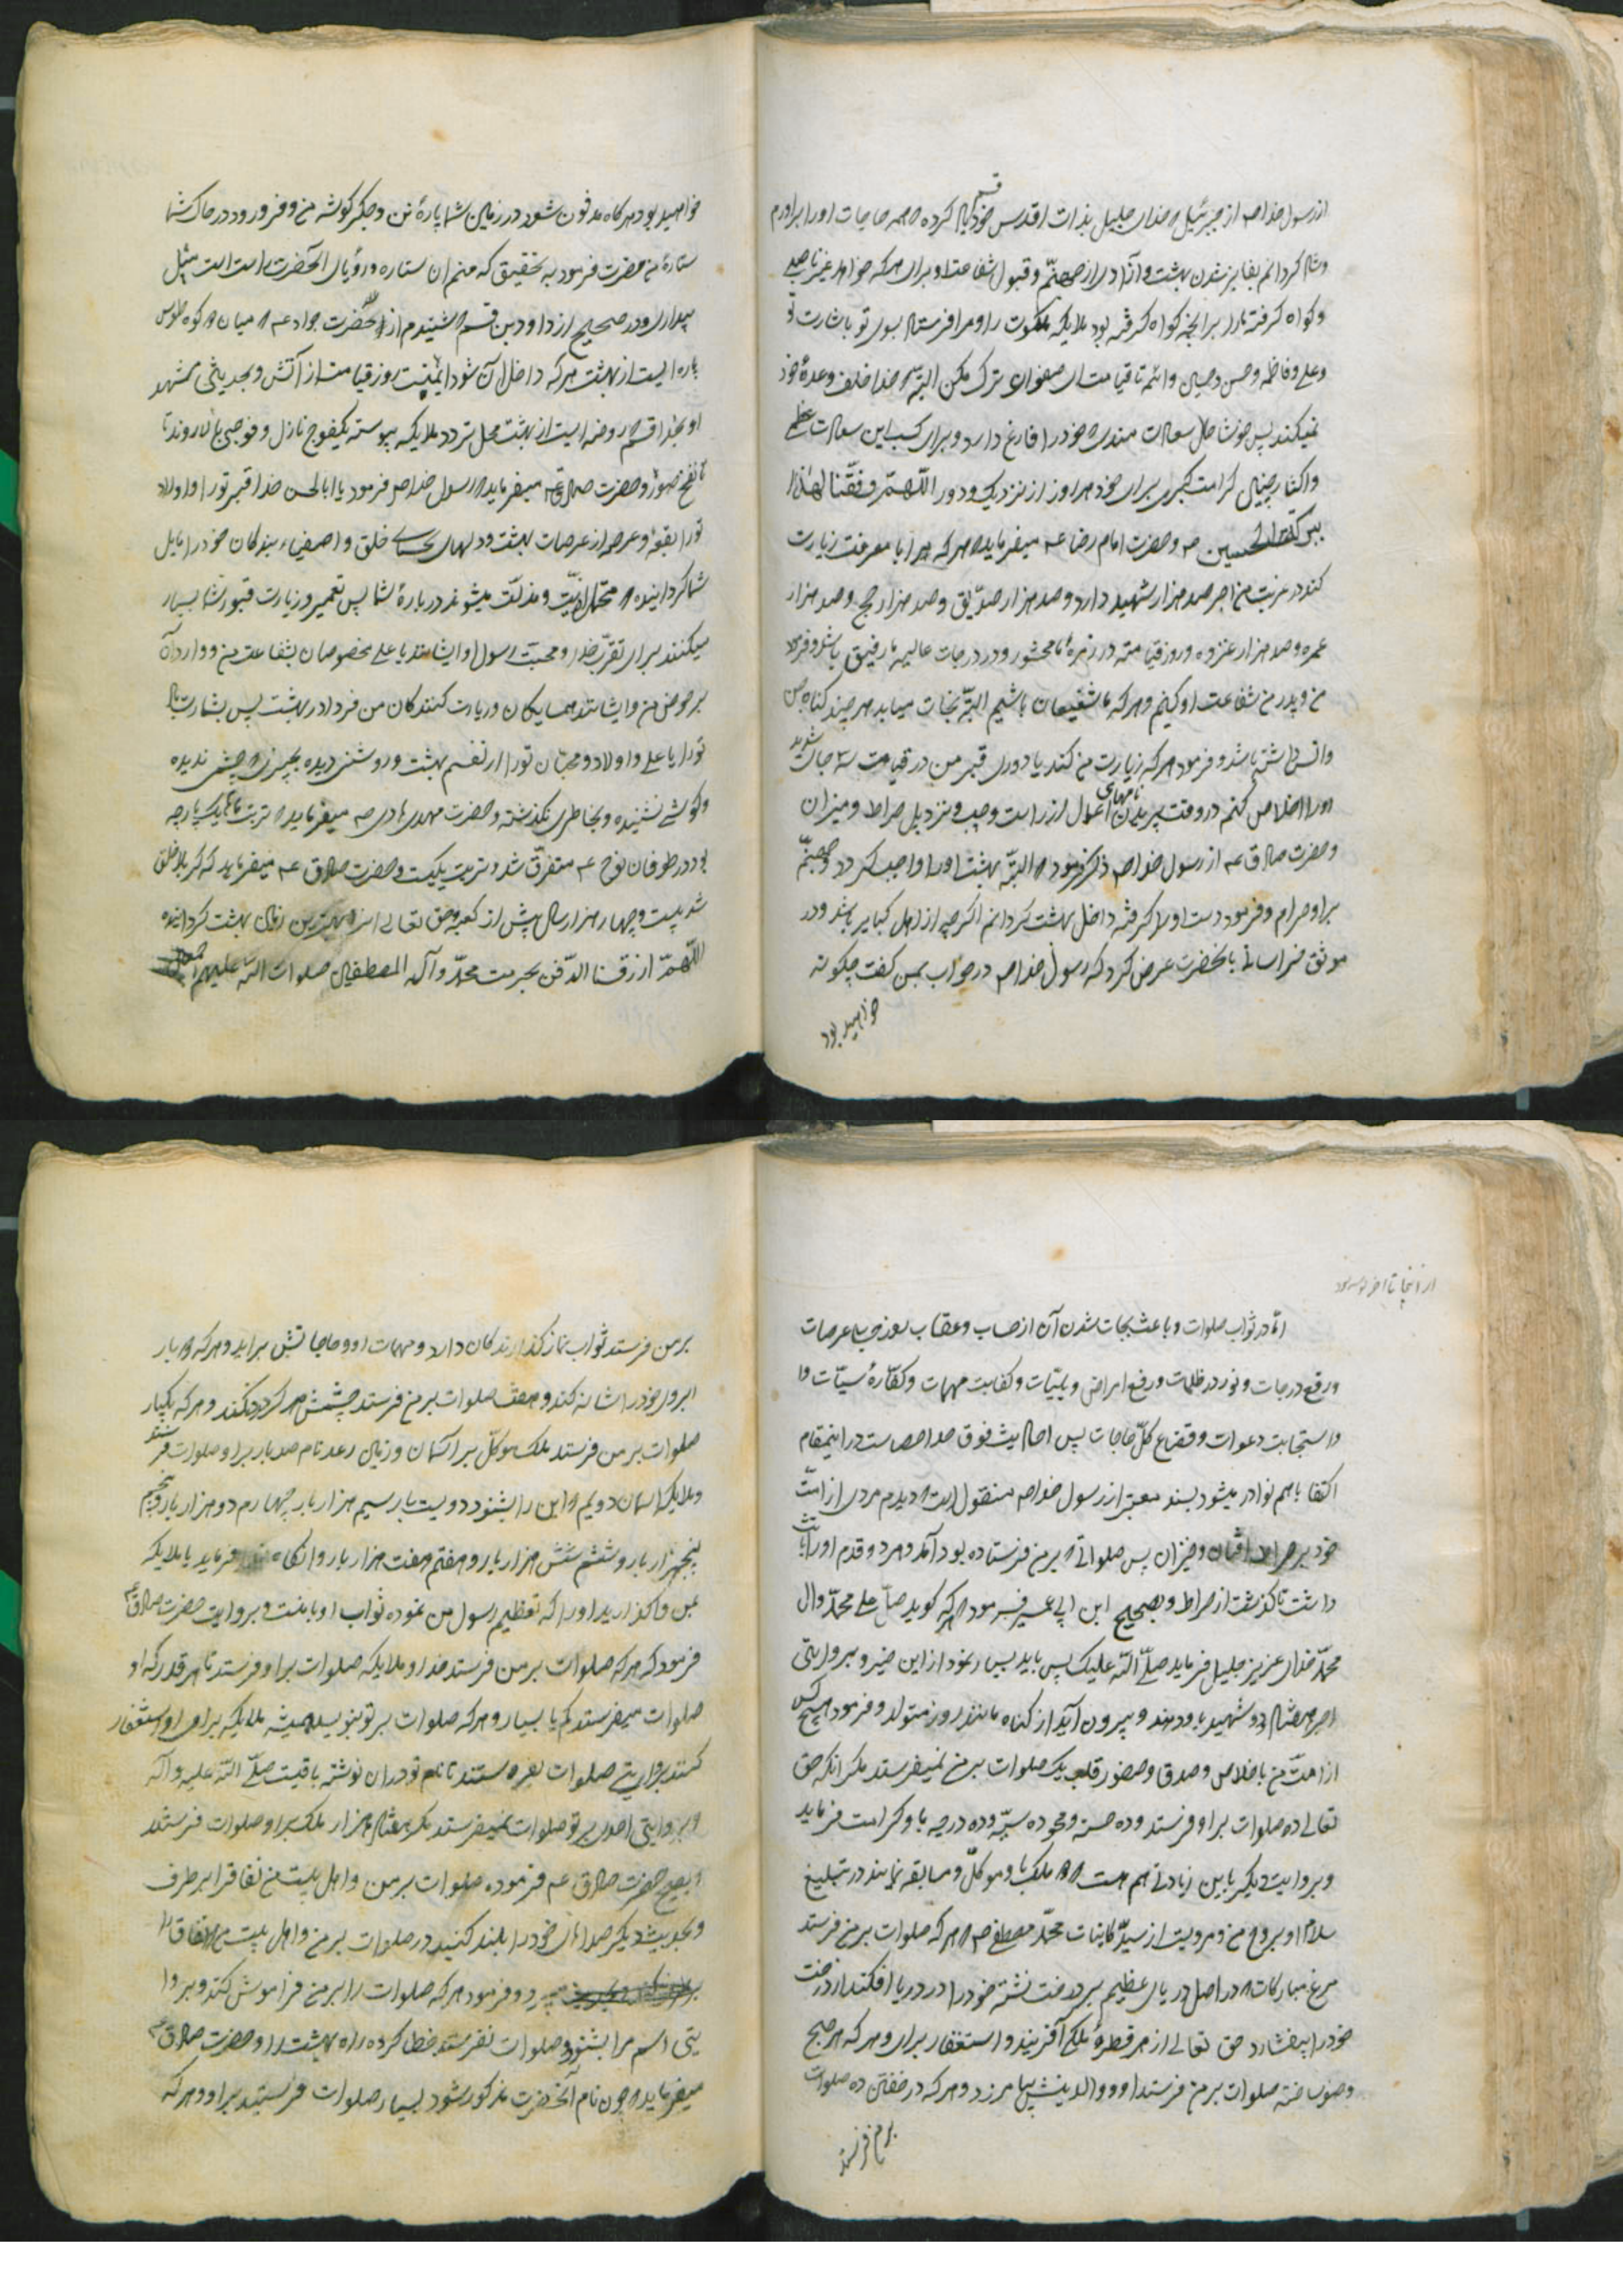 از رسول خدا ص از جبرئیل ۀ خدای جلیل بذات اقدس خود قسم یاد کرده ۀ همه حاجات او را برآورم
وشاد کردانم بفایز شدن بهشت و آزادی از جهنّم و قبول شفاعت او برای هرکه خواهد غیر ناصبی
وکواه کرفته برانچه کواه کرفته بود ملایکه ملکوت را و مرا فرستاد بسوی تو بشارت
وعلی و فاطمه و حسن و حسین و ائمه تا قیامت ای صفوان ترک مکن البتّه خدا خلف وعدۀ خود
نمیکند پس خوشا حال سعادت مندی ۀ خود را فارغ دارد و برای کسب این سعادت عظمی
واکتساب چنین کرامت کبری برای خود هر روز از نزدیک و دور اللّهمّ وفّقنا لهذا
ببرکة الحسین ص وحضرت امام رضا عم میفرماید ۀ هرکه مرا با معرفت زیارت
کند در غربت من اجر صد هزار شهید دارد و صد هزار صدّیق و صد هزار حج و صد هزار
عمره و صد هزار غزوه و روز قیامت در زمرۀ ما محشور و در درجات عالیه ما رفیق باشد و فرمود
من و پدر من شفاعت او کنیم و هرکه ما شفیعان باشیم البتّه نجات میابد هر چند کناه جن
وانس داشته باشد و فرمود هرکه زیارت من کند با دوری قبر من در قیامت سه جای شدید
او را خلاص کنم در وقت پریدن نامهای اعمال از راست و چپ و نزد پل صراط و میزان
وحضرت صادق عم از رسول خدا ص ذکر فرمود ۀ البتّه بهشت او را واجب کردد و جهنّم
براو حرام و فرمود دست او را کرفته داخل بهشت کردانم اکرچه از اهل کبایر باشد ودر
موثق خراسانی بانحضرت عرض کرد که رسول خدا ص در خواب بمن کفت چکونه
خواهید بود
خواهید بود هرکاه مدفون شود در زمین شما پارۀ تن و جکر کوشه من و فرو رود در خاک شما
ستارۀ من حضرت فرمود به تحقیق که منم ان ستاره و رؤیای آنحضرت راست است مثل
بیداری ودر صحیح از داود بن قسم ۀ شنیدم از آنحضرت جواد عم ۀ میان دو کوه طوس
پاره ایست از بهشت هرکه داخل آن شود ایمنست روز قیامت از آتش و بحدیثی مشهد
او بخدا قسم روضه ایست از بهشت محل تردد ملایکه پیوسته یکفوج نازل و فوجی بالا روند تا
تا نفخ صور و حضرت صادق عم میفرماید ۀ رسول خدا ص فرمود یا ابالحسن خدا قبر تو را و اولاد
تو را بقعه و عرصه از عرصات بهشت و دلهای نجبای خلق و اصفیاء بندکان خود را مایل
شما کردانیده ۀ متحمل اذیّت و مذلّت میشوند دربارۀ شما پس تعمیر و زیارت قبور شما بسیار
میکنند برای تقرّب خدا و محبّت رسول او ایشانند یا علی مخصوصان بشفاعت من و وارد آن
بر حوض من و ایشانند همسایکان و زیارت کنندکان من فردا در بهشت پس بشارت باد
تو را یا علی و اولاد و محبان تو را از نعیم بهشت و روشنی دیده بچیزی ۀ چشمی ندیده
وکوشی نشنیده و بخاطری نکذشته و حضرت مهدی هادی ص میفرماید ۀ تربت ما یک پارچه
بود در طوفان نوح عم متفرّق شد و تربت یکیست و حضرت صادق عم میفرماید که کربلا خلق
شد بیست و چهار هزار سال پیش از کعبه و حق تعالی انرا بهترین زمین بهشت کردانیده
اللّهمّ ارزقنا الدّفن بحرمت محمّد و آله المصطفین صلوات اللّه علیهم اجمعین
از اینجا تا اخر
امّا در ثواب صلوات و باعث نجات شدن آن از حساب و عقاب روز جزا عرصات
ورفع درجات و نور در ظلمات ورفع امراض و بلیّات و کفایت مهمات و کفّارۀ سیّئات
واستجابت دعوات و قضاء کلّ حاجات پس احادیث فوق حد احصاست در اینمقام
اکتفا باهم نوادر میشود بسند معتبر از رسول خدا ص منقول است ۀ دیدم مردی از امّت
خود بر صراط افتان و خیزان پس صلواتی ۀ بر من فرستاده بود آمد و هر دو قدم او را ثابت
داشت تا کذشت از صراط و بصحیح ابن ابی عمیر فرمود ۀ هرکه کوید صلّ علی محمّد وال
محمّد خدای عزیز جلیل فرماید صلّی اللّه علیک پس باید بسیار نمود از این خیر و بروایتی
اجر هفتاد و دو شهید باو دهند و بیرون آید از کناه مانند روز متولد و فرمود هیچ کس
از امّت من باخلاص و صدق و حضور قلب یک صلوات بر من نمیفرستد مکر انکه حق
تعالی ده صلوات براو فرستد وده حسنه و محو ده سیّئه وده درجه باو کرامت فرماید
وبروایت دیکر باین زیادتی هم هست ۀ دو ملک باو موکّل و مسابقه نمایند در تبلیغ
سلام او بروح من و مرویست از سیّد کاینات محمّد مصطفی ص ۀ هرکه صلوات بر من فرستد
مرغ مبارکاتی ۀ در اصل دریای عظیم بر درخت نشسته خود را در دریا افکند از درخت
خود را بیفشارد حق تعالی از هر قطرۀ ملکی آفریند و استغفار برای او هرکه هر صبح
وضو ساخته صلوات بر من فرستد او و والدینش بیامرزد و هرکه در خفتن ده صلوات
برمن فرستد
بر من فرستد ثواب نماز کذارندکان دارد و مهمات او و حاجاتش براید و هرکه ۀ بار
ابروی خود را شانه کند و هفت صلوات بر من فرستد چشمش درد نکند و هرکه یکبار
صلوات بر من فرستد ملک موکّل بر آسمان و زمین رعد نام صد بار براو صلوات فرستد
وملایک اسمان دویم ۀ این را بشنود دویست بار سیم هزار بار چهارم دو هزار بار و پنجم
پنجهزار بار و ششم شش هزار بار و هفتم هفت هزار بار وانکاه خدا فرماید یا ملایکه
بمن واکذارید او را که تعظیم رسول من نموده ثواب او با منست و بروایت حضرت صادق عم
فرمود که هرکه صلوات بر من فرستد خدا و ملایکه صلوات براو فرستد تا هر قدر که او
صلوات میفرستد کم یا بسیار و هرکه صلوات بر تو بنویسد همیشه ملایکه برای او استغفار
کنند بروایتی صلوات بفرستند تا نام تو در ان نوشته باقیست صلّی اللّه علیه و آله
وبروایتی احدی بر تو صلوات نمیفرستد مکر هفتاد هزار ملک براو صلوات فرستند
وبصحیح حضرت صادق عم فرموده صلوات بر من و اهل بیت من نفاق را برطرف
وبحدیث دیکر صداهای خود را بلند کنید در صلوات بر من و اهل بیت من ۀ نفاق را
میبرد و فرمود هرکه صلوات را بر من فراموش کند و بروا
یتی اسم مرا بشنود و صلوات نفرستد خطا کرده راه بهشت را و حضرت صادق عم
میفرماید ۀ چون نام آنحضرت مذکور شود بسیار صلوات فرستید براو و هرکه